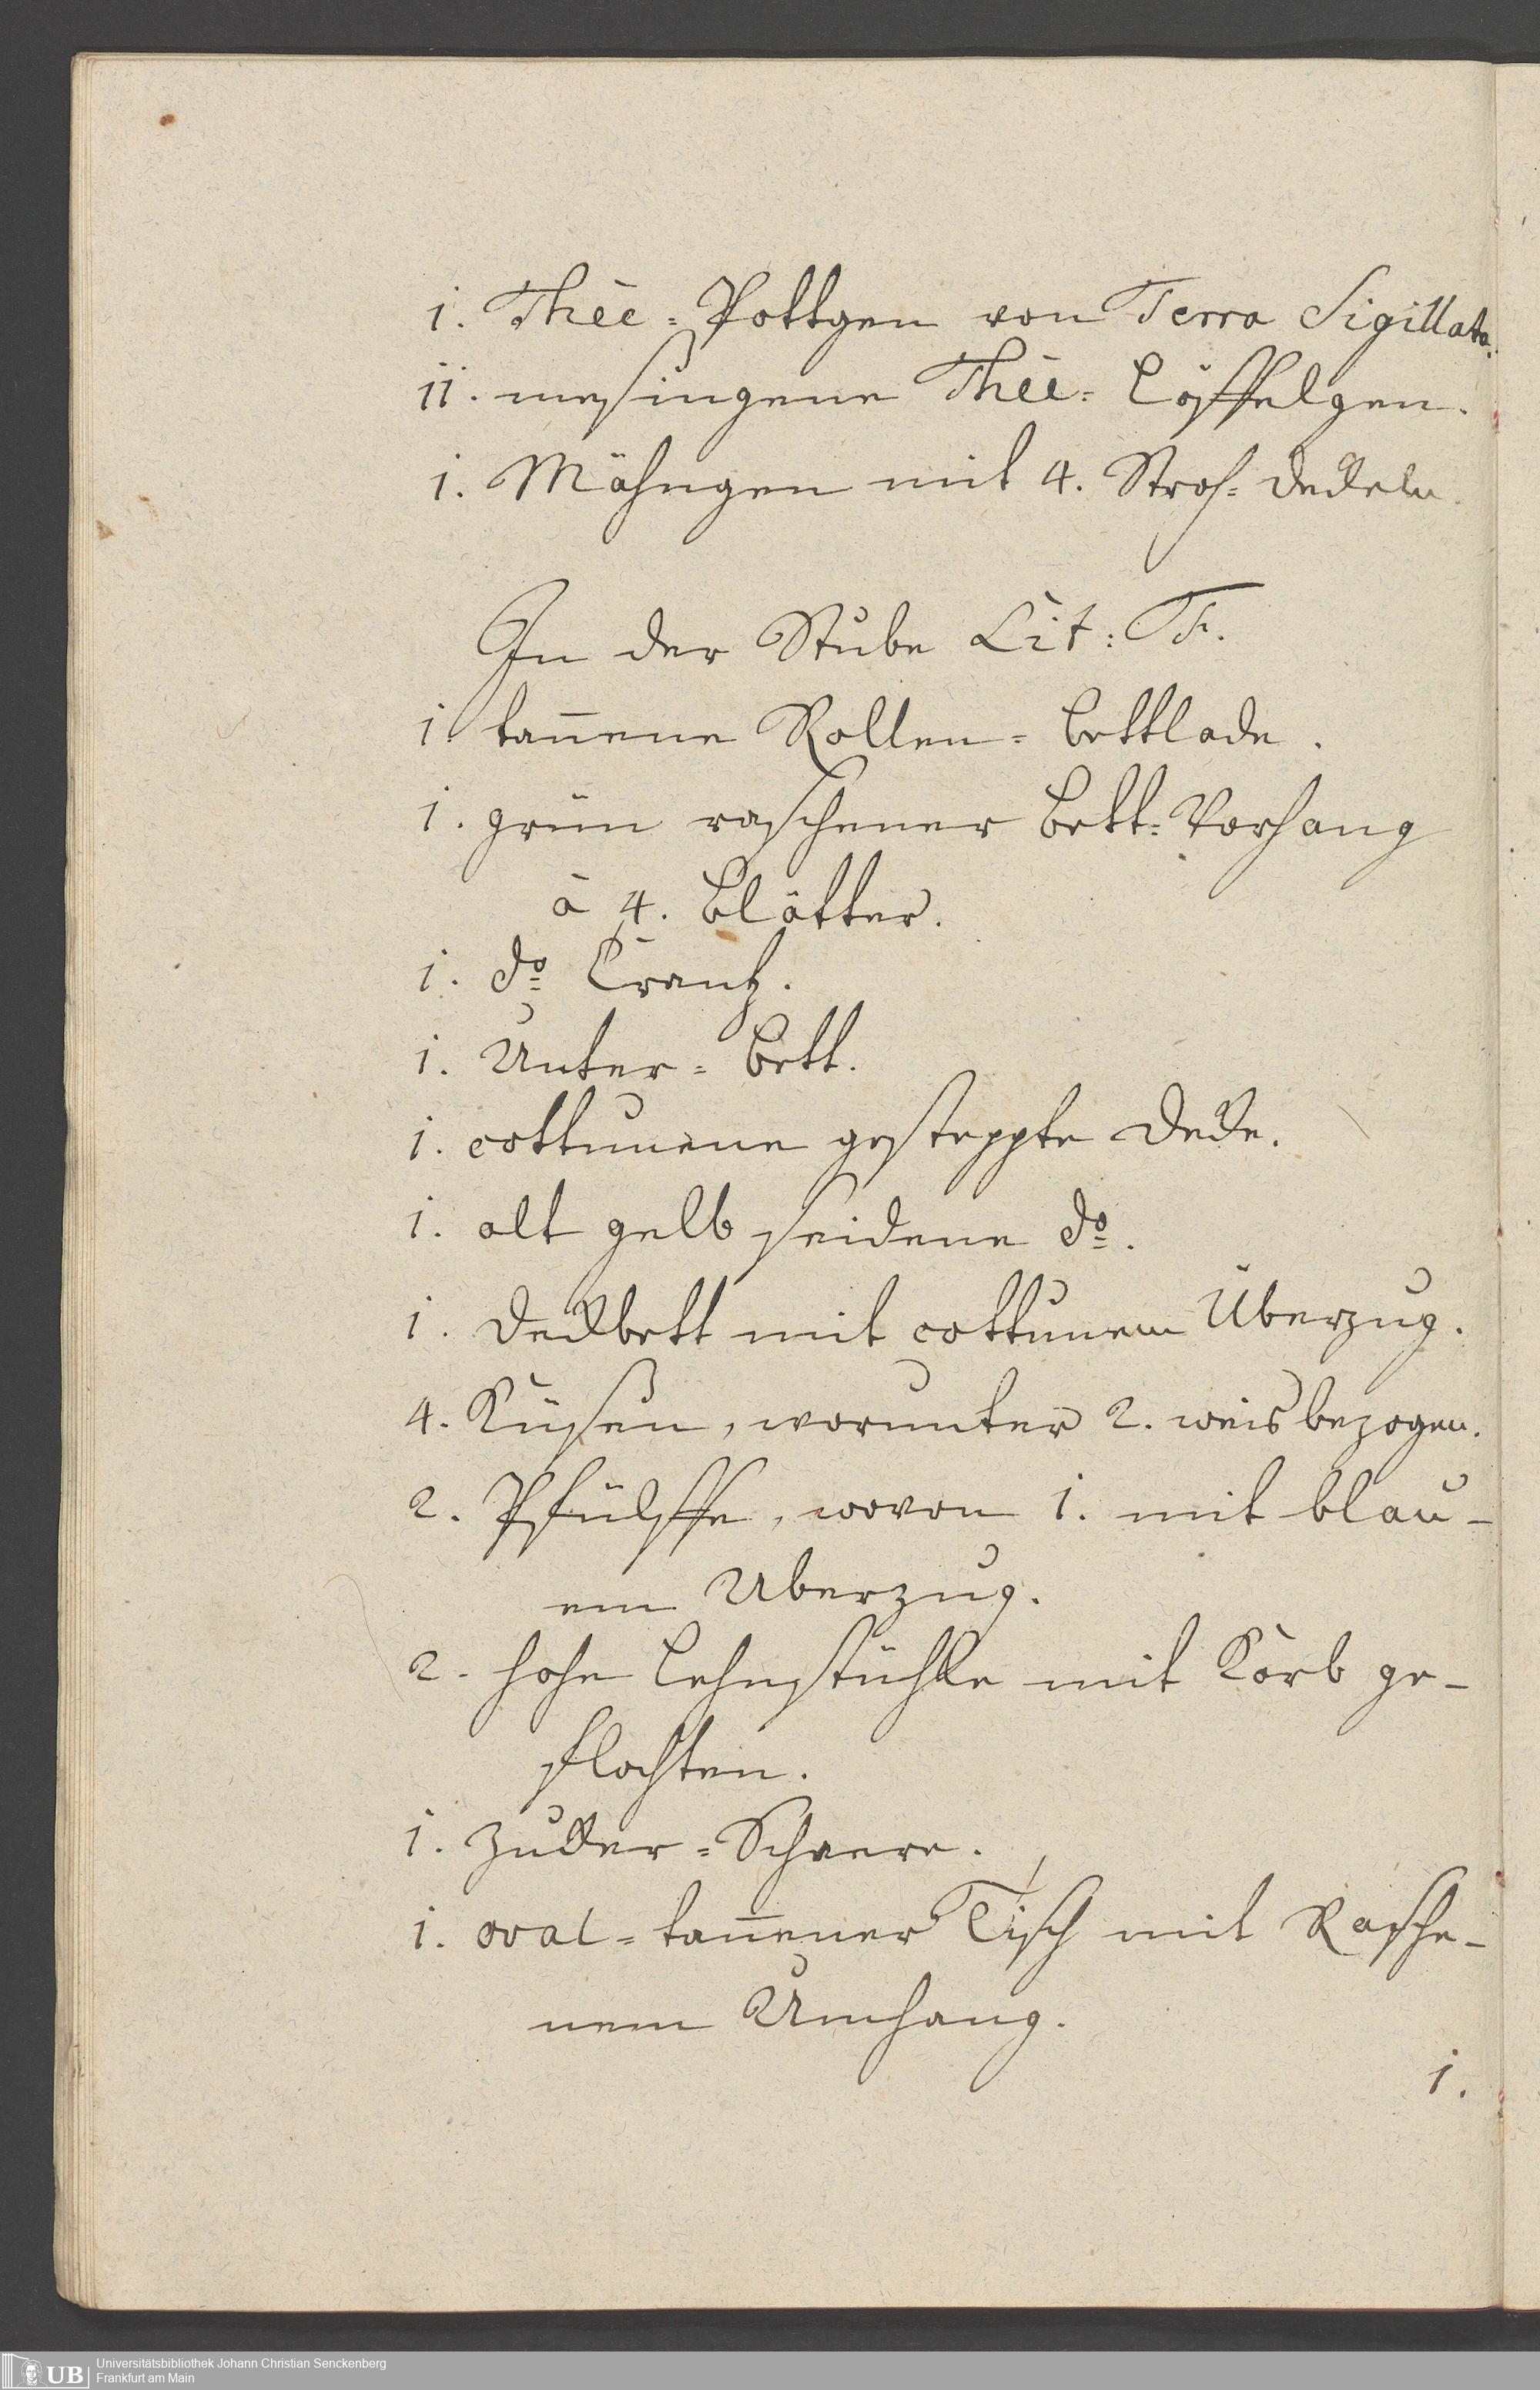 1. Thèe-Pottgen von Terra Sigillata.
11. messingene Thèe-Löffelgen.
1. Mähngen mit 4. Stroh-Deckeln.
In der Stube Lit: F.
1. tan̄ene Rollen-Bettlade.
1. grün raschener Bett-Vorhang
à 4. Blätter.
1. do Crantz.
1. Unter-Bett.
1. cottunene gesteppte Decke.
1. alt gelb seidene do.
1. Deckbett mit cottunem Überzug.
4. Küßen, worunter 2. weis bezogen.
2. Pfülffe, wovon 1. mit blau-
em Uberzug.
2. hohe Lehnstühle mit Korb ge-
flochten.
1. Zucker-Scheere.
1. oval-tan̄ener Tisch mit Rasche-
nem Umhang.
1.
UB Universitätsbibliothek Johann Christian Senckenberg
Frankfurt am Main